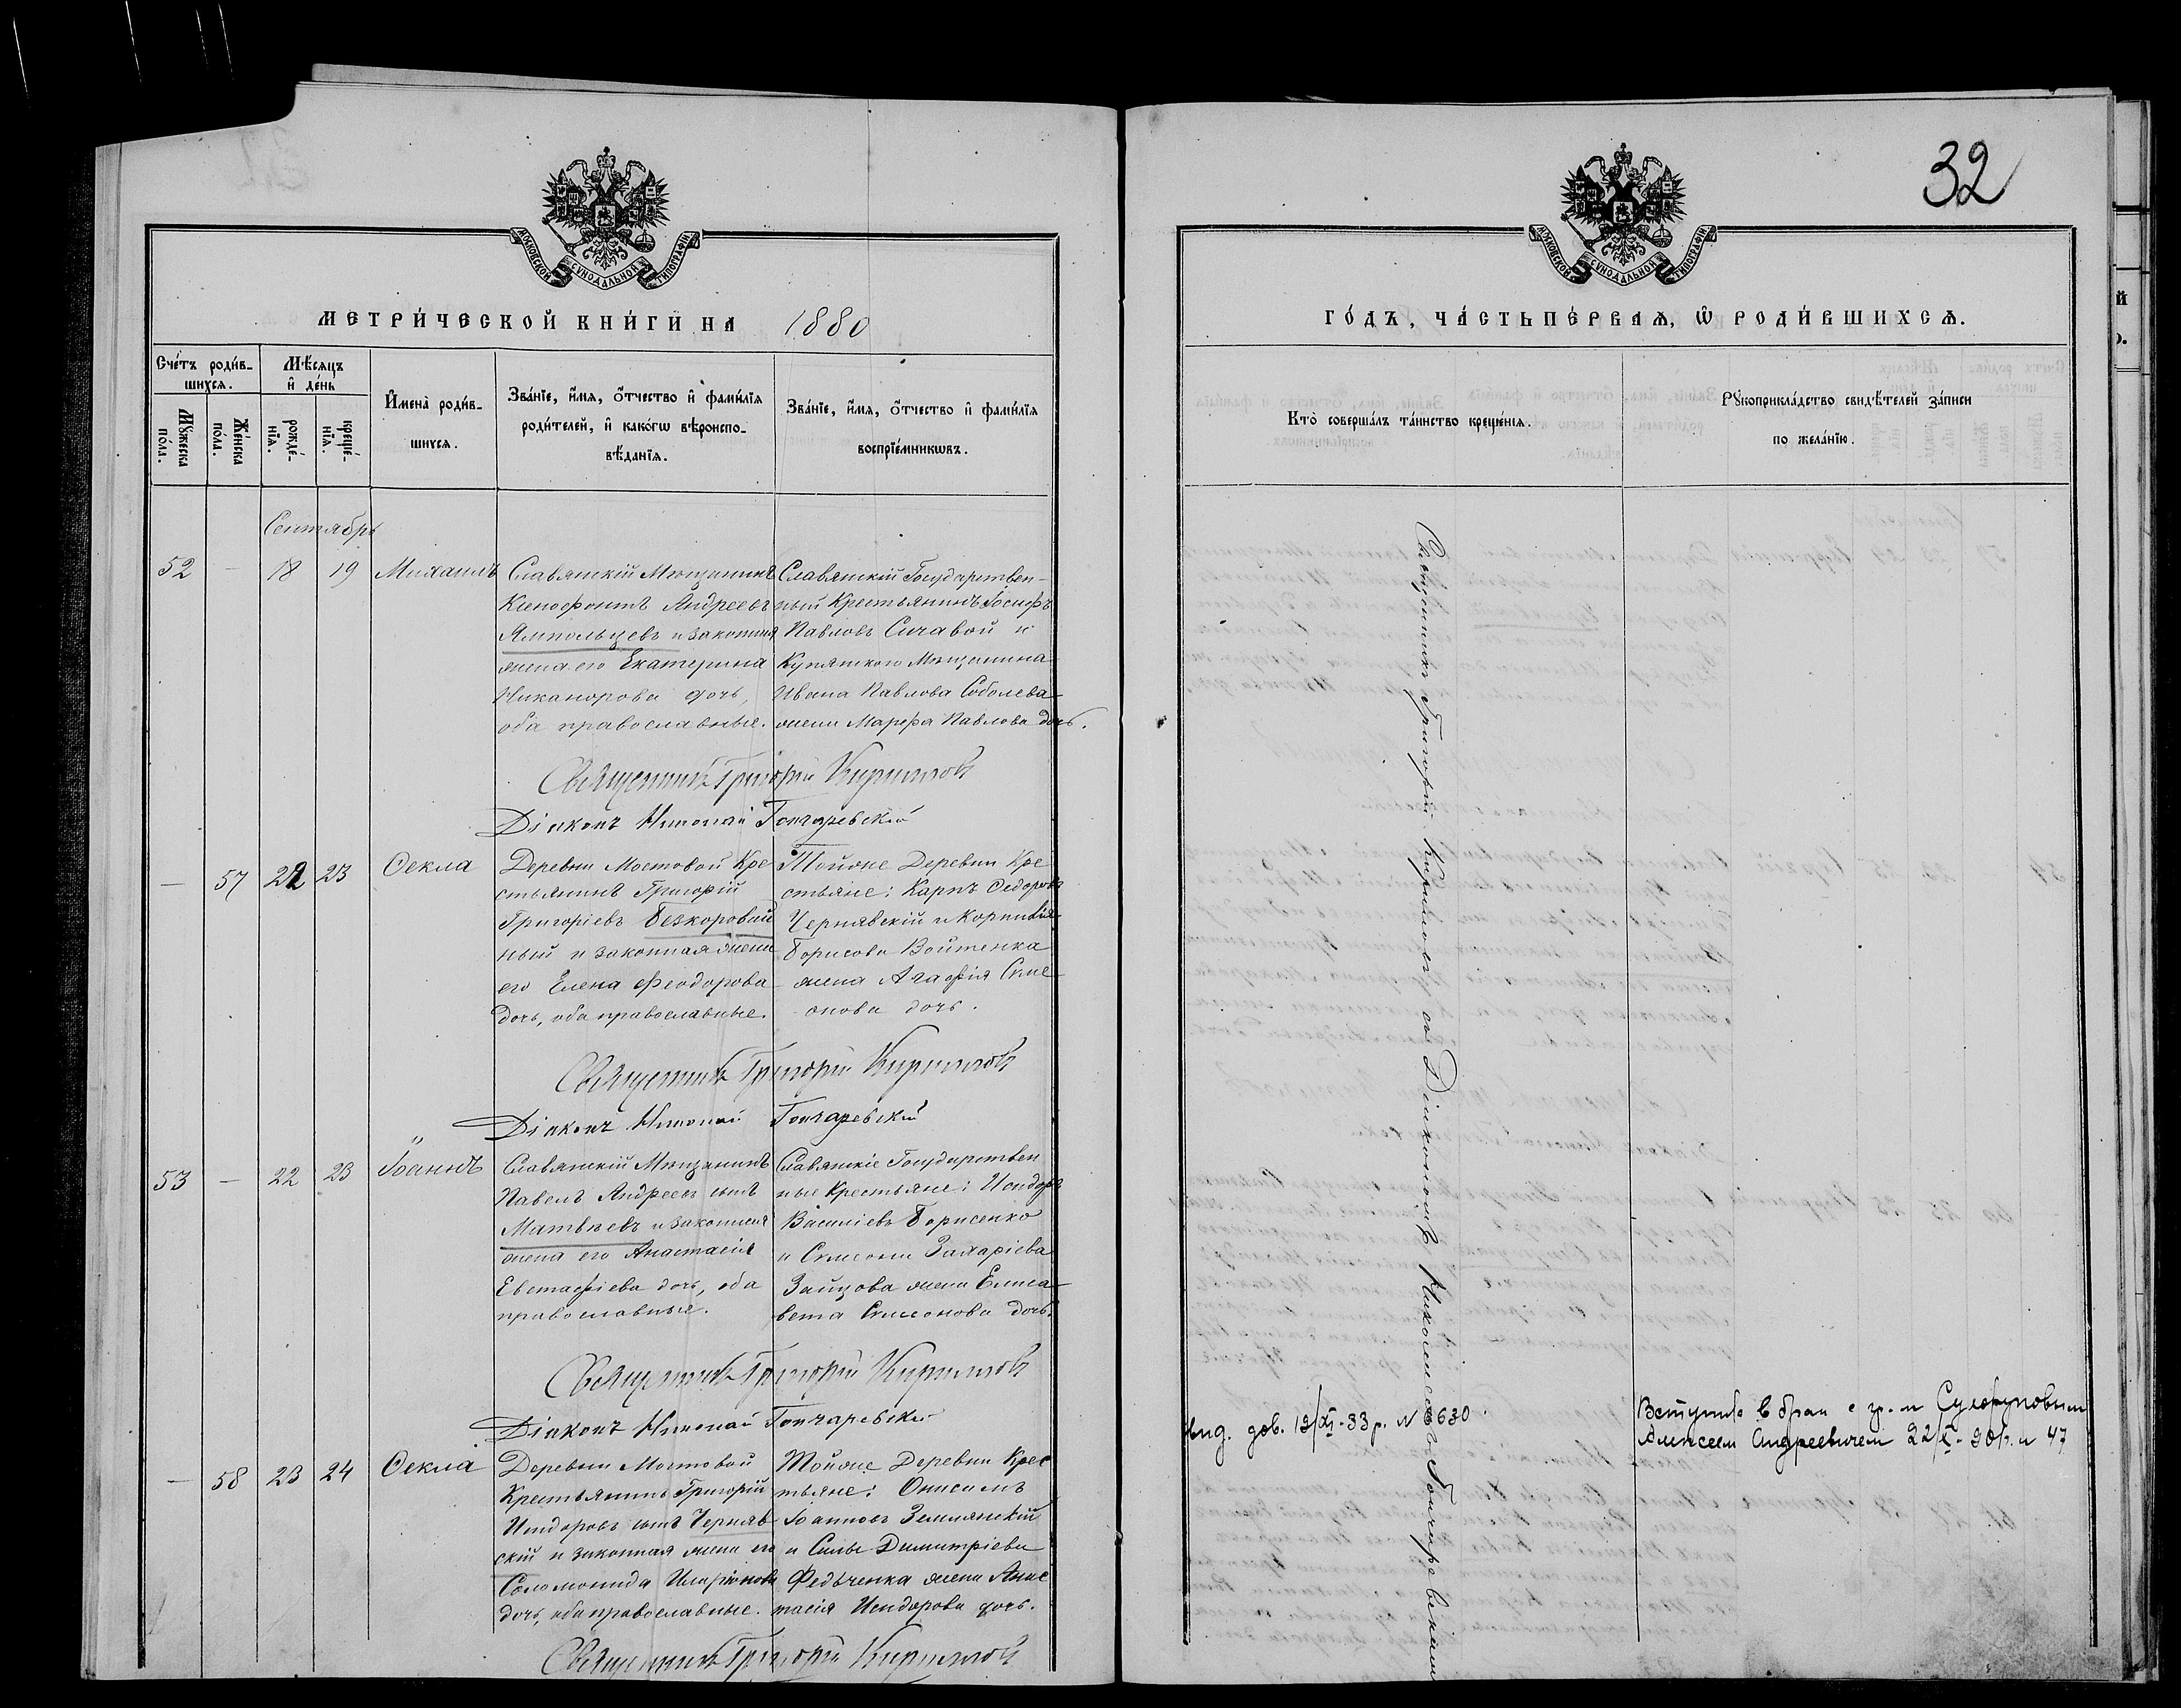 32
МОСКОВСКОЙ СѴНОДАЛЬНОЙ ТИПОГРАФІИ
МЕТРИ́ЧЕСКОЙ КНИ́ГИ НА 1880
Сче́тъ роди́вшихсѧ.
Мѣ́сѧцъ и҆ де́нь
Мꙋ́жеска по́ла.
Же́нска по́ла.
рожде́нїѧ.
креще́нїѧ.
И҆мена̀ роди́вшихсѧ.
Зва́нїе, и҆́мѧ, ѻ҆́тчество и҆ фами́лїѧ
роди́телей, и҆ како́гѡ вѣ́роиспо-
вѣ́данїѧ.
Зва́нїе, и҆́мѧ, ѻ҆́тчество и҆ фами́лїѧ
воспрїе́мникѡвъ.
Сентябрь
52 — 18 19 Михаилъ
Славянскій Мѣщанинъ
Ксенофонтъ Андреевъ
Ямпольцевъ и законная
жена его Екатерина
Никанорова дочь,
оба православные.
Славянскій Государствен-
ный Крестьянинъ Іосифъ
Павловъ Сичавой и
Купянскаго Мѣщанина
Ивана Павлова Соболева
жена Марфа Павлова дочь.
Священникъ Григорій Кирилловъ
Діаконъ Николай Гончаревскій
— 57 22 23 Ѳекла
Деревни Мостовой Кре
стьянинъ Григорій
Григоріевъ Безкоровай
ный и законная жена
его Елена Феодорова
дочь, оба православные.
Той же Деревни Кре
стьяне: Карпъ Федоровъ
Чернявскій и Корнилія
Борисова Войтенка
жена Агафія Симе
онова дочь.
Священникъ Григорій Кирилловъ
Діаконъ Николай Гончаревскій
53 — 22 23 Іоаннъ
Славянскій Мѣщанинъ
Павелъ Андреевъ сынъ
Матвѣевъ и законная
жена его Анастасія
Евстафіева дочь, оба
православные.
Славянскіе Государствен
ные Крестьяне: Исидоръ
Василіевъ Борисенко
и Симеона Захаріева
Зайцова жена Елиса
вета Симеонова дочь.
Священникъ Григорій Кирилловъ
Діаконъ Николай Гончаревскій
— 58 23 24 Ѳекла
Деревни Мостовой
Крестьянинъ Григорій
Исидоровъ сынъ Черняв
скій и законная жена его
Соломонида Иларіонова
дочь, оба православные.
Той же Деревни Крес
тьяне: Онисимъ
Іоанновъ Землянскій
и Силы Димитріева
Федьченка жена Анас
тасія Исидорова дочь.
Священникъ Григорій Кирилловъ
МОСКОВСКОЙ СѴНОДАЛЬНОЙ ТИПОГРАФІИ
ГО́ДЪ, ЧА́СТЬ ПЕ́РВАѦ, Ѡ҆ РОДИ́ВШИХСѦ.
Кто̀ соверша́лъ та́инство креще́нїѧ.
Рꙋкоприкла́дство свидѣ́телей за́писи
по жела́нїю.
Священникъ Григорій Кирилловъ съ Діакономъ Николаемъ Гончаревскимъ
вид. дов. 19/XI-33 р. N 3630.
Вступила в брак с гр-м Сухоруповым
Алексеем Андреевичем 22/X - 30 р. N 47